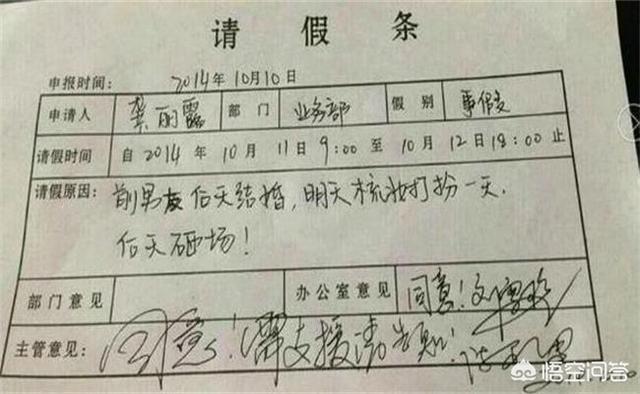 请假条
申报时间: 2014年10月10日
申请人 龚丽露 部门 业务部 假别 事假
请假时间 自2014年10月11日9:00至10月12日18:00止
请假原因: 前男友后天结婚,明天梳妆打扮一天.
后天砸场!
部门意见 办公室意见 同意!
主管意见: 同意!需支援请告知!
悟空问答